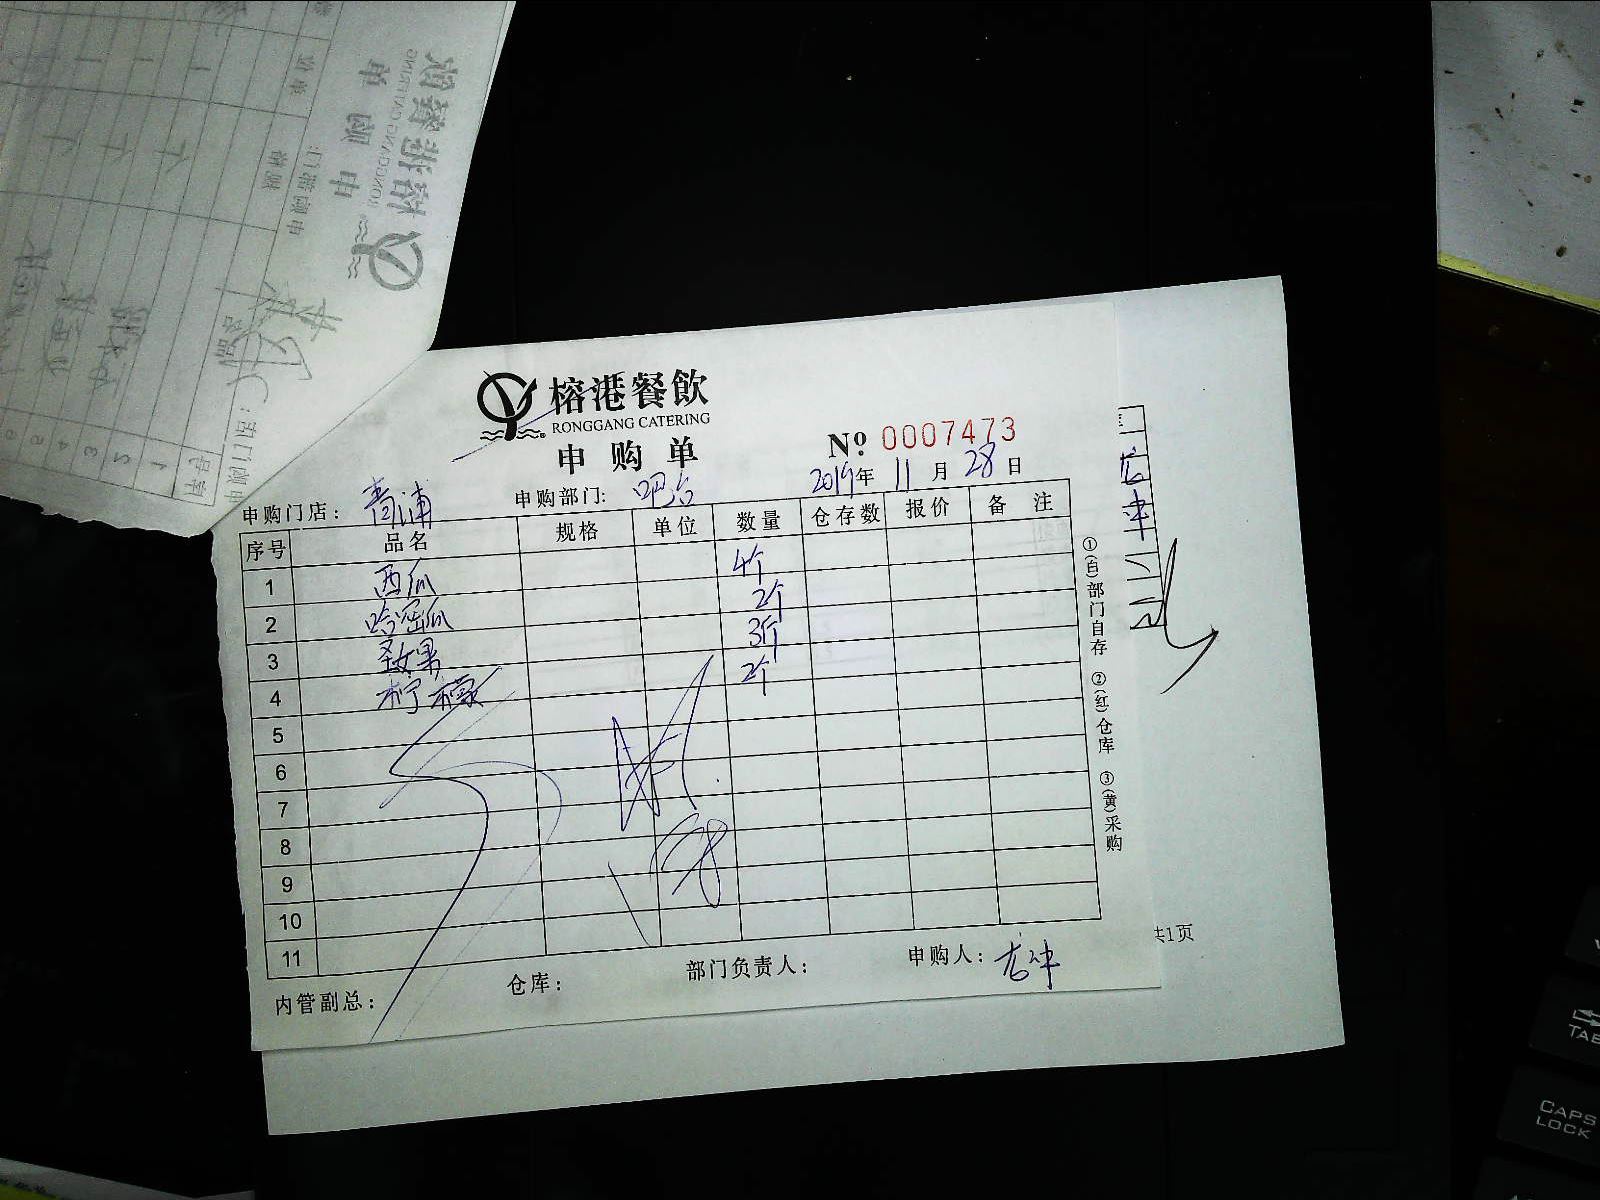 榕港餐飲
RONGGANG CATERING
申购单
Nº 0007473
申购门店：青浦 申购部门：吧台 2019年11月28日
序号 品名 规格 单位 数量 仓存数 报价 备注
1 西瓜 4个
2 哈密瓜 2个
3 圣女果 3斤
4 柠檬 2个
5
6
7
8
9
10
11
内管副总： 仓库： 部门负责人： 申购人：
①(白)部门自存 ②(红)仓库 ③(黄)采购
共1页
TAB
CAPS
LOCK